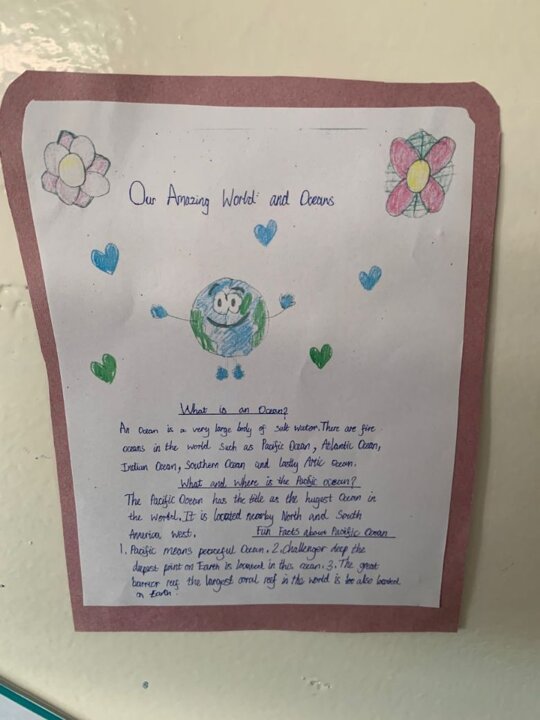 Our Amazing World and Oceans
What is an Ocean?
An Ocean is a very large body of salt water. There are five
oceans in the world such as Pacific Ocean, Atlantic Ocean,
Indian Ocean, Southern Ocean and lastly Artic Ocean.
What and where is the Pacific ocean?
The Pacific Ocean has the title as the hugest Ocean in
the world. It is located nearby North and South
America west. Fun Facts about Pacific Ocean
1. Pacific means peaceful Ocean. 2. Challenger deep the
deepest point on Earth is located in this ocean. 3. The great
barrier reef the largest coral reef in the world is also located
on Earth.